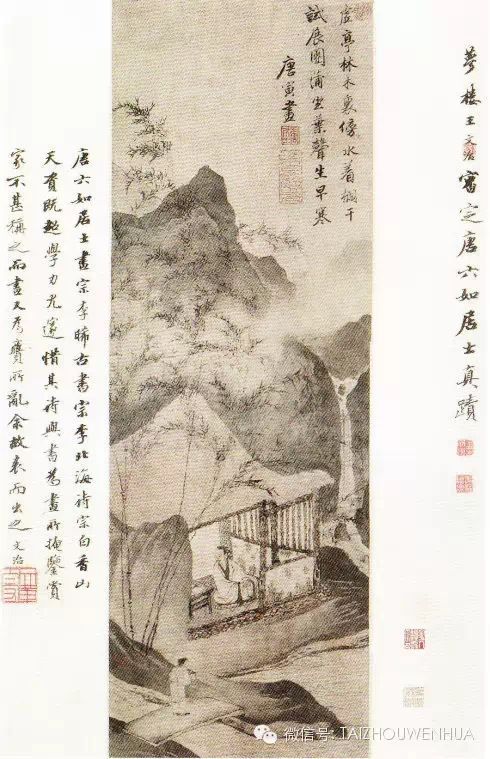 夢樓王文治審定唐六如居士真蹟
虛亭林木裏傍水着欄干
試展團蒲坐葉聲生早寒
唐寅畫
唐六如居士畫宗李晞古書宗李北海詩宗白香山
天資既超學力尤邃惜其詩與書為畫所掩鑒賞
家不甚稱之而畫又為贗所亂余故表而出之文治
微信号: TAIZHOUWENHUA